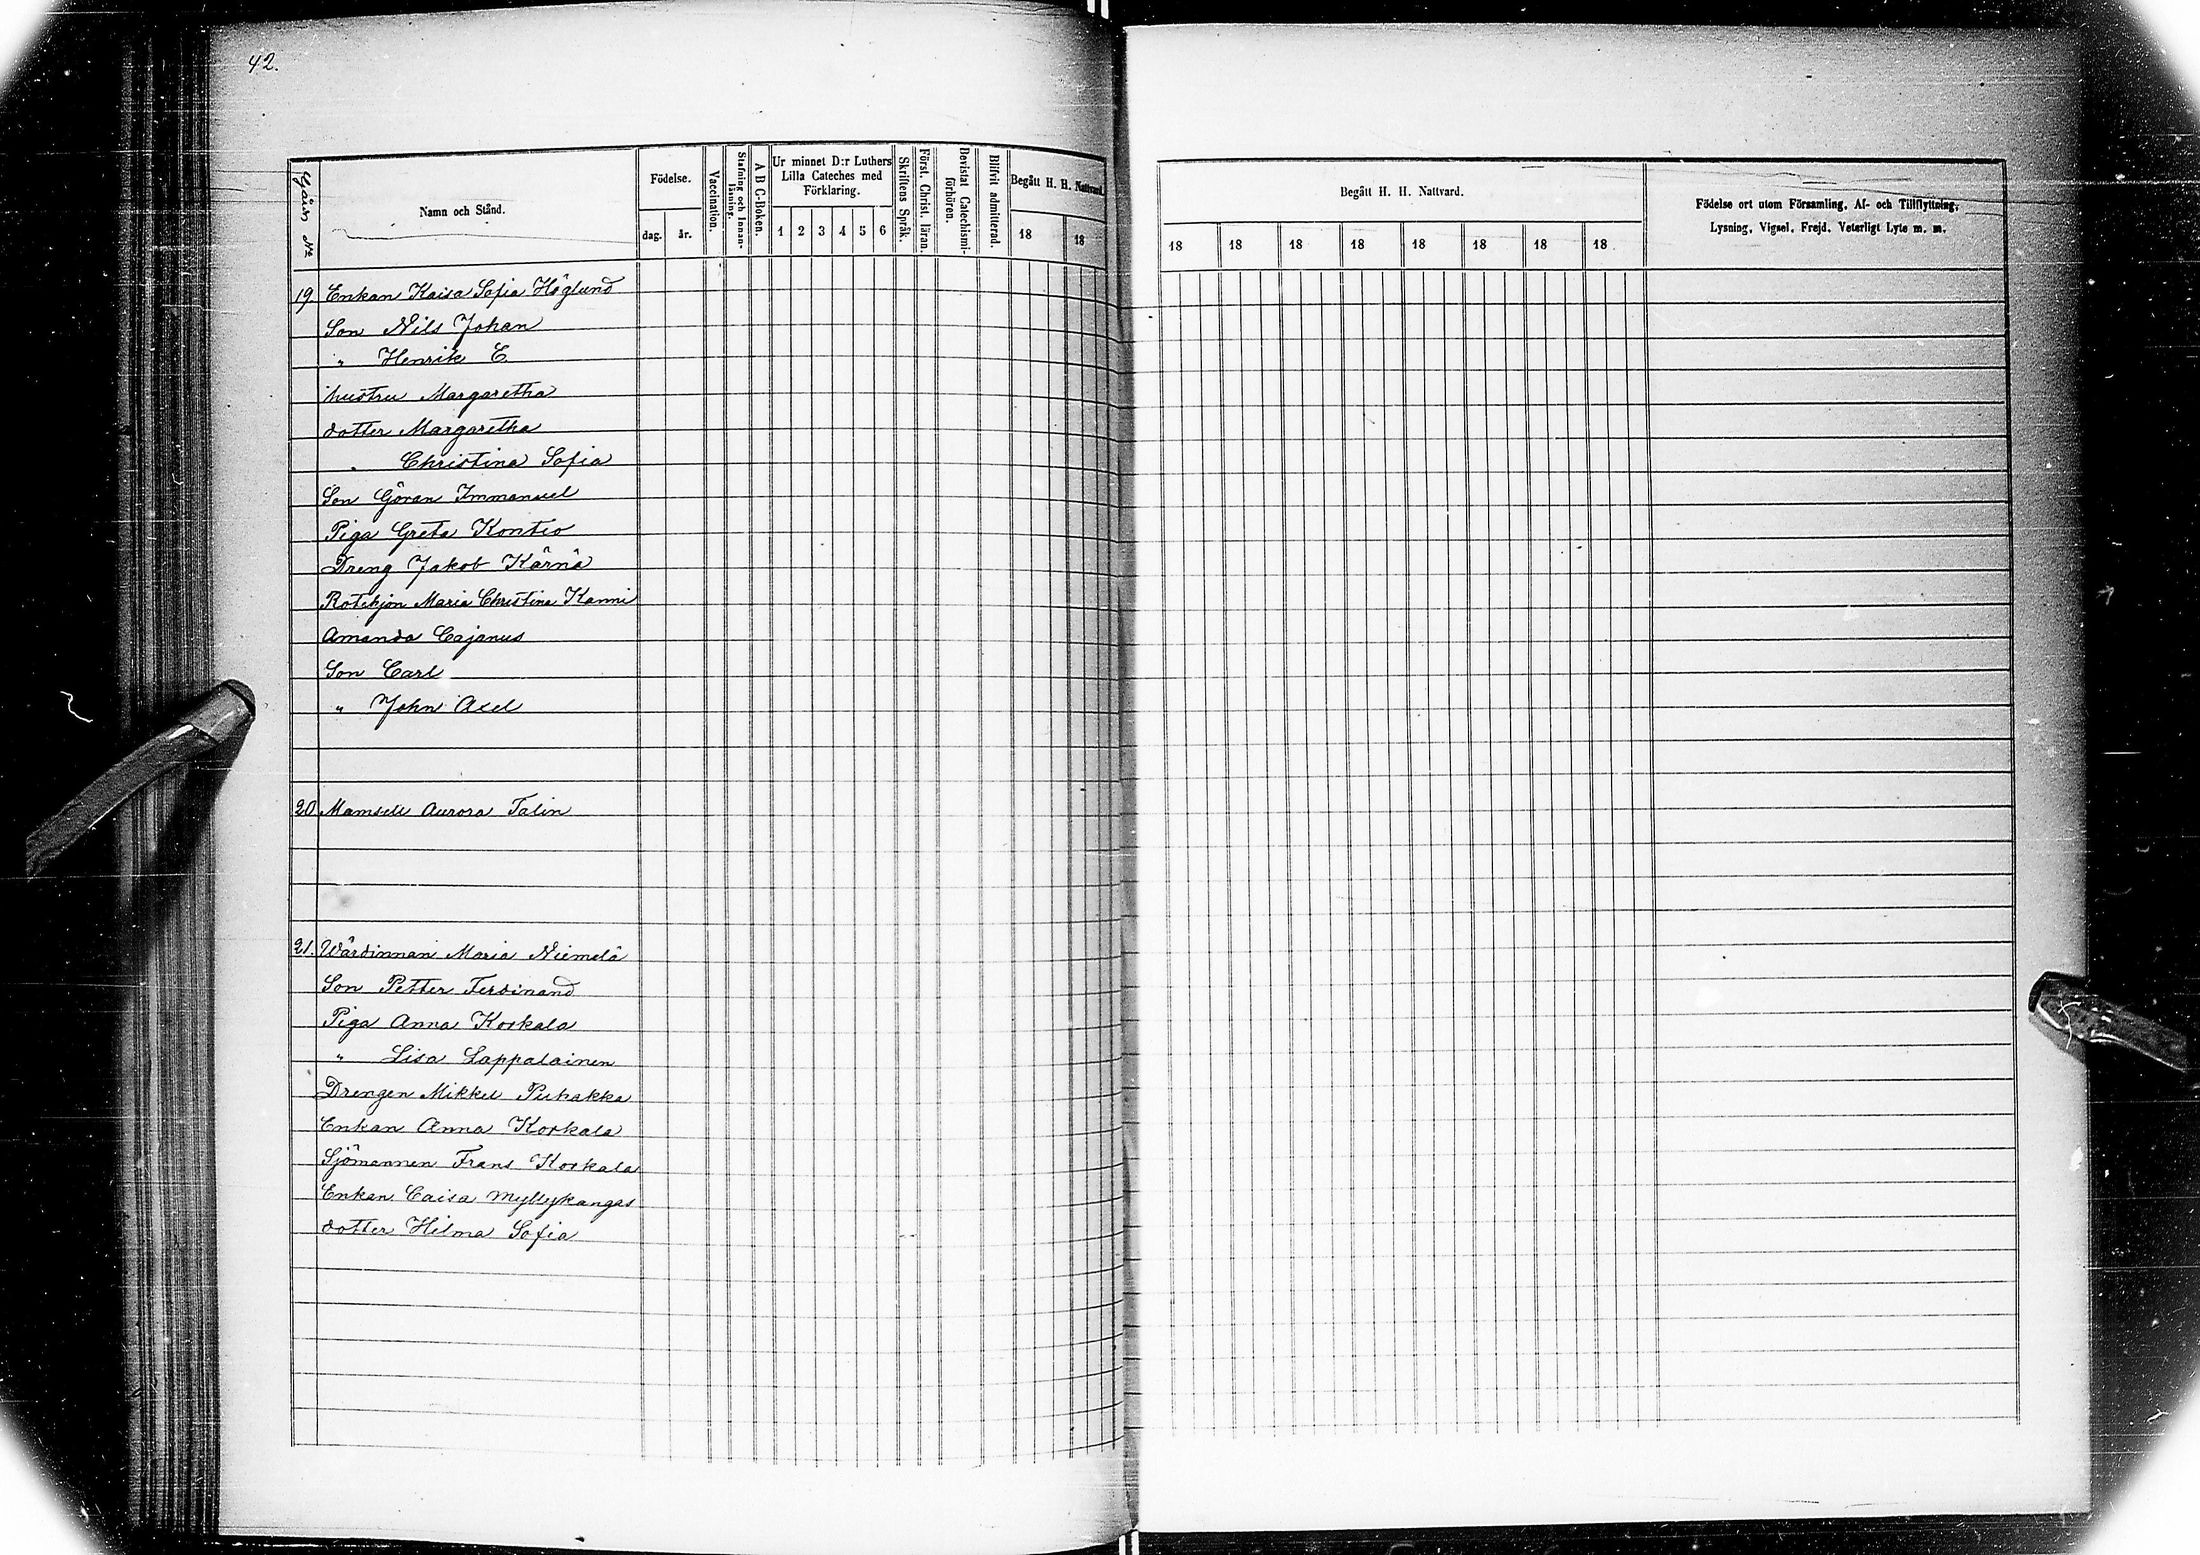 42.
Gård № 
Namn och Stånd.
Födelse.
dag. år.
Vaccination.
Stafning och Innanläsning.
A B C-Boken.
Ur minnet D:r Luthers
Lilla Cateches med
Förklaring.
1 2 3 4 5 6
Skriftens Språk.
Först. Christ. läran.
Bevistat Catechismiförhören.
Blifvit admitterad.
Begått H. H. Nattvard.
18 18
Begått H. H. Nattvard.
18 18 18 18 18 18 18 18
Födelse ort utom Församling, Af- och Tillflyttning,
Lysning, Vigsel, Frejd, Veterligt Lyte m. m.
19 Enkan Kaisa Sofia Höglund
Son Nils Johan
" Henrik E.
hustru Margaretha
dotter Margaretha
" Christina Sofia
Son Göran Immanuel
Piga Greta Kontio
Dreng Jakob Kärnä
Rotehjon Maria Christina Kanni
Amanda Cajanus
Son Carl
" John Axel
20 Mamsell Aurora Talin
21. Wärdinnan Maria Niemelä
Son Petter Ferdinand
Piga Anna Korkala
" Lisa Lappalainen
Drengen Mikkel Puhakka
Enkan Anna Korkala
Sjömannen Frans Korkala
Enkan Caisa Myllykangas
dotter Hilma Sofia